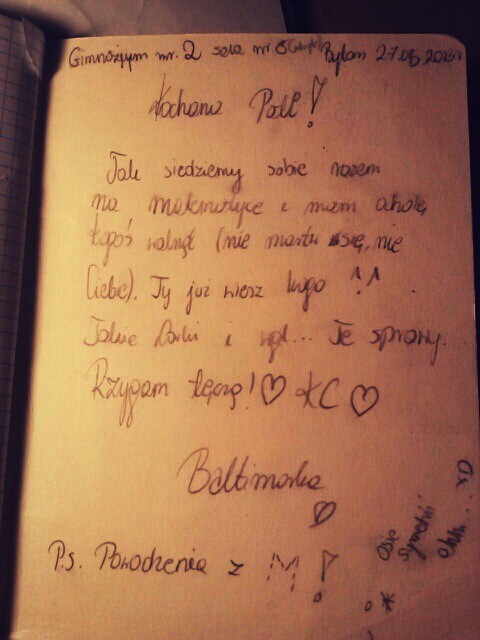 Gimnazjum nr. 2 sala nr. Bytom 27.05.2013r
Kochana Poll!
Tak siedziemy sobie razem
na matematyce i mam ochotę
kogoś walnąć (nie martw się, nie
Ciebie). Ty już wiesz kogo ^^
Takie Darki i wgl... Te sprawy.
Rzygam tęczą! ♡ KC ♡
Baltimorka
♡
P.s. Powodzenia z M!